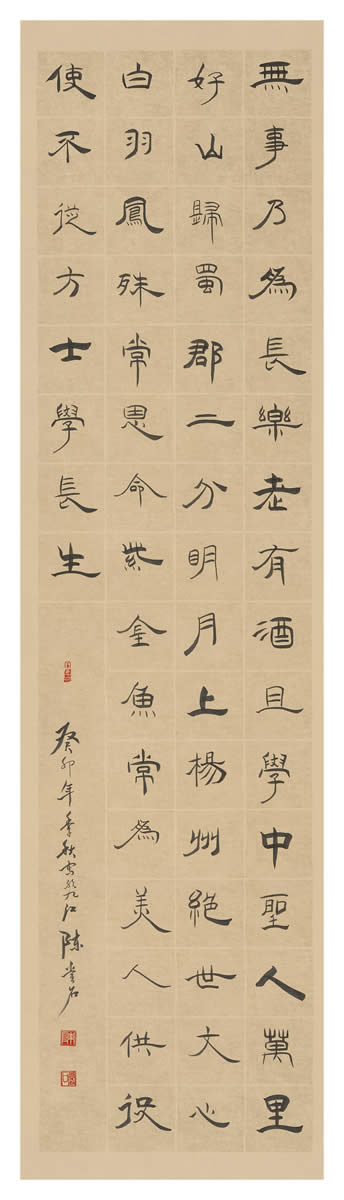 無事乃爲長樂老有酒且學中聖人萬里
好山歸蜀郡二分明月上楊州絕世文心
白羽鳳殊常恩命紫金魚常爲美人供役
使不從方士學長生
癸卯年季秋書於九江陳